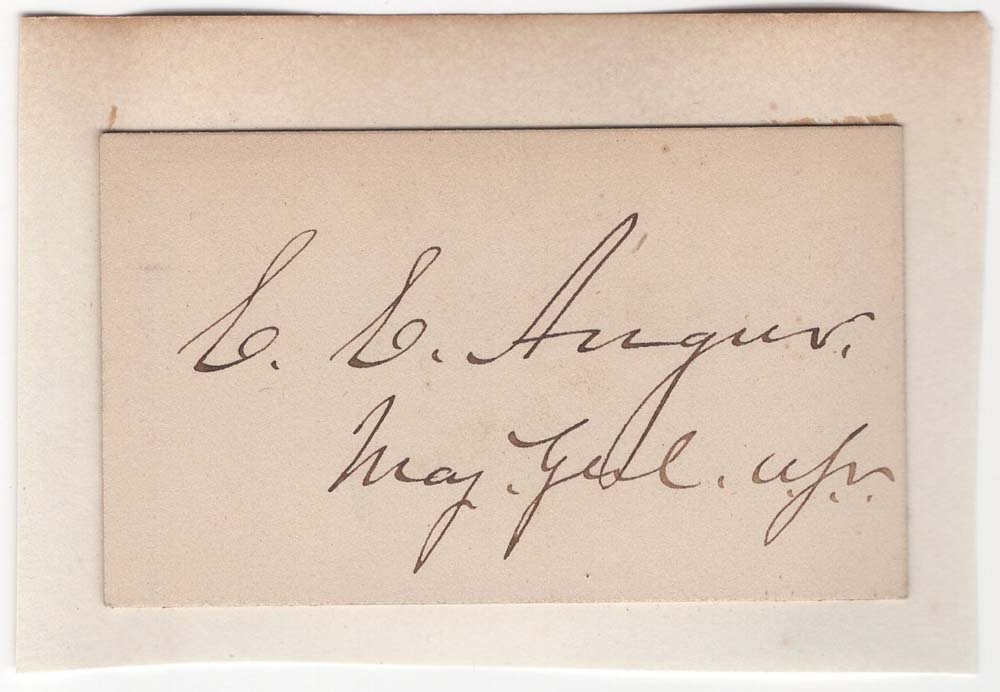 C. C. Augur.
Maj. Genl. U.S.V.